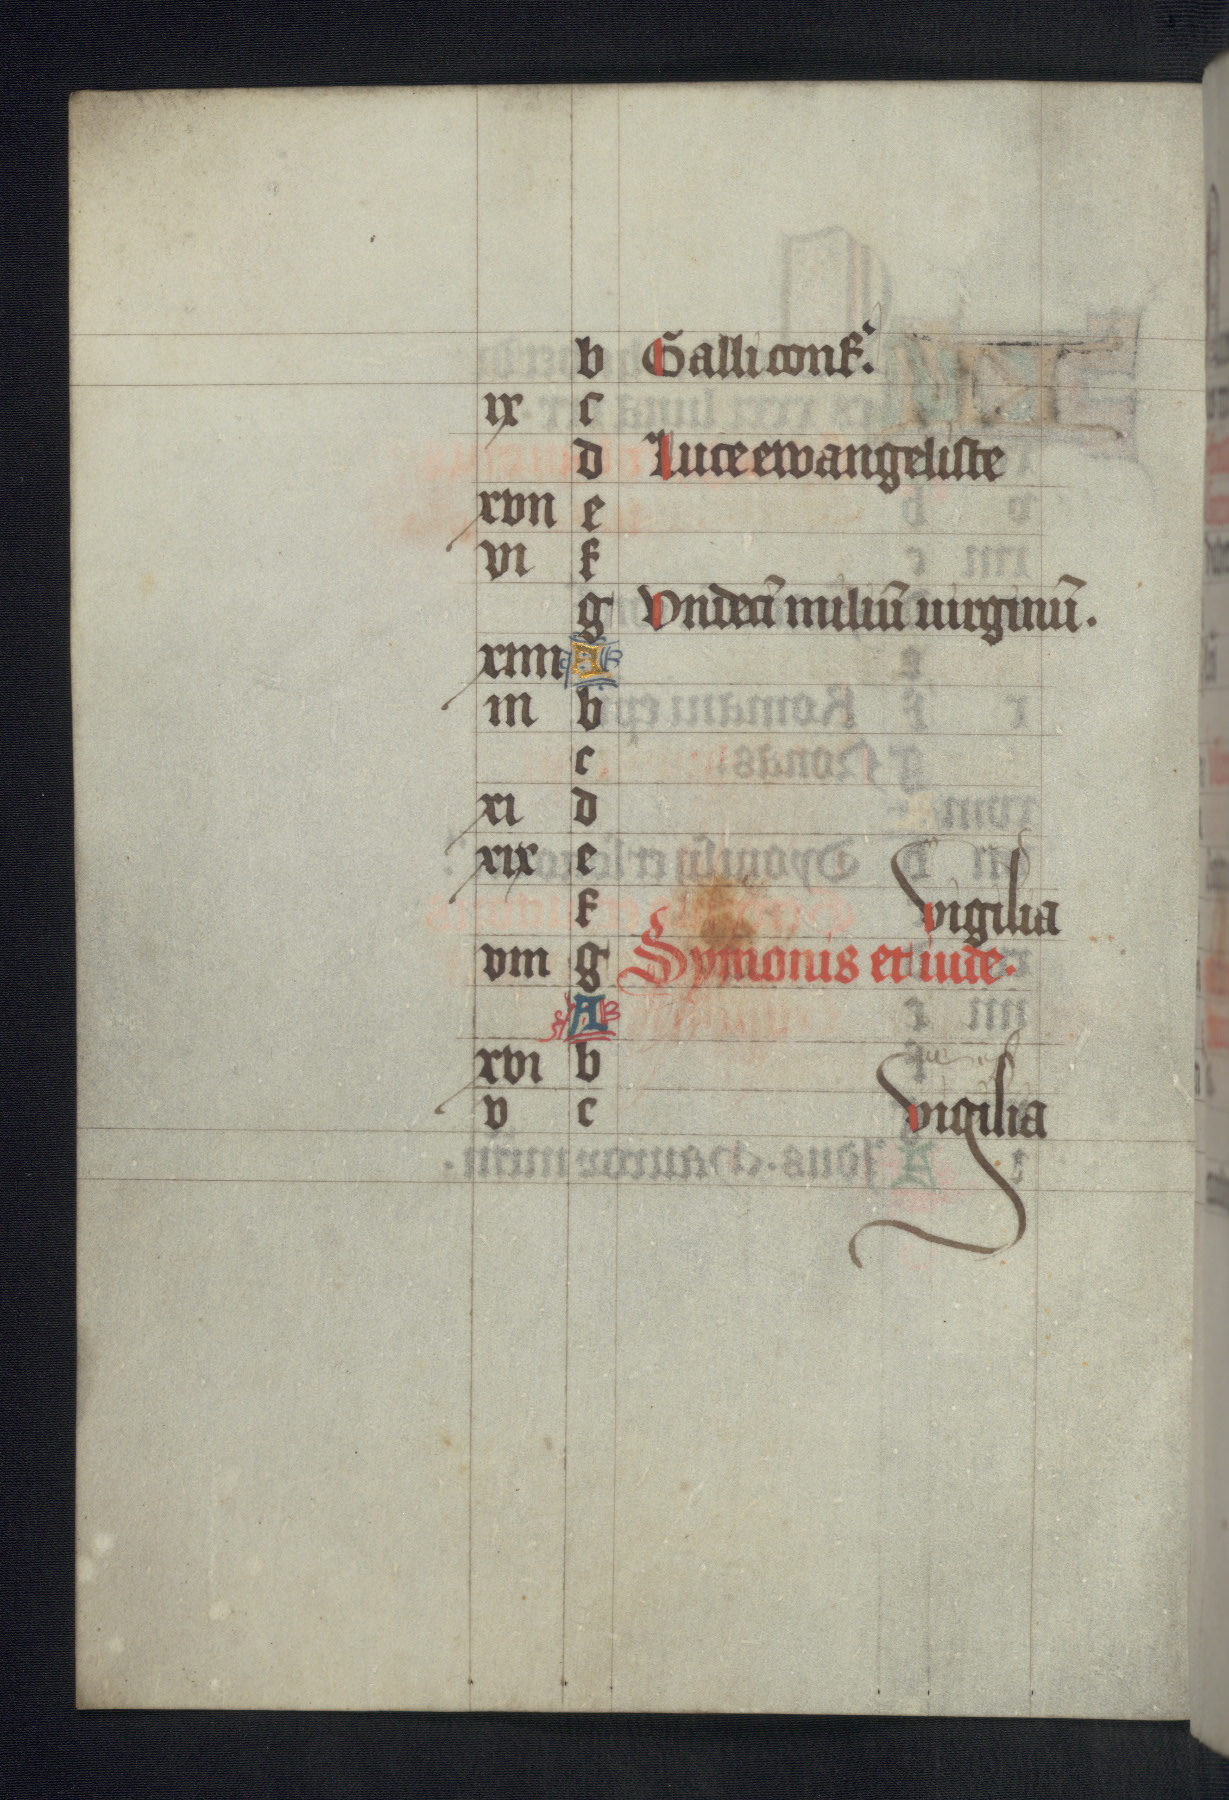 b Galli conf.
ix c
d Luce ewangeliste
xvii e
vi f
g Undecī miliū uirginū.
xiiii A
iii b
c
xi d
xix e
f vigilia
viii g Symonis et iude.
A
xvi b
v c vigilia